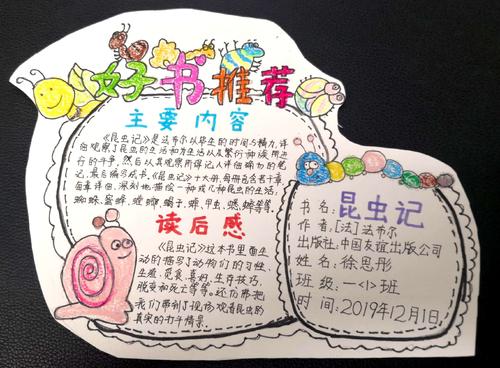 好书推荐
主要内容
《昆虫记》是法布尔以毕生的时间与精力,详
细观察了昆虫的生活和为生活以及繁衍种族所进
行的斗争,然后以其观察所得记入详细确切的笔
记,最后编写成书。《昆虫记》十大册,每册包含若干章,
每章详细、深刻地描绘一种或几种昆虫的生活,
蜘蛛、蜜蜂、螳螂、蝎子、蝉、甲虫、蟋蟀等等。
读后感
《昆虫记》这本书里面生
动的描写了动物们的习性、
生殖、觅食、喜好、生存技巧、
蜕变和死亡等等。还仿佛把
我们带到了现场观看昆虫的
真实的打斗情景。
书名:昆虫记
作者:[法]法布尔
出版社:中国友谊出版公司
姓名:徐思彤
班级:一<1>班
时间:2019年12月1日